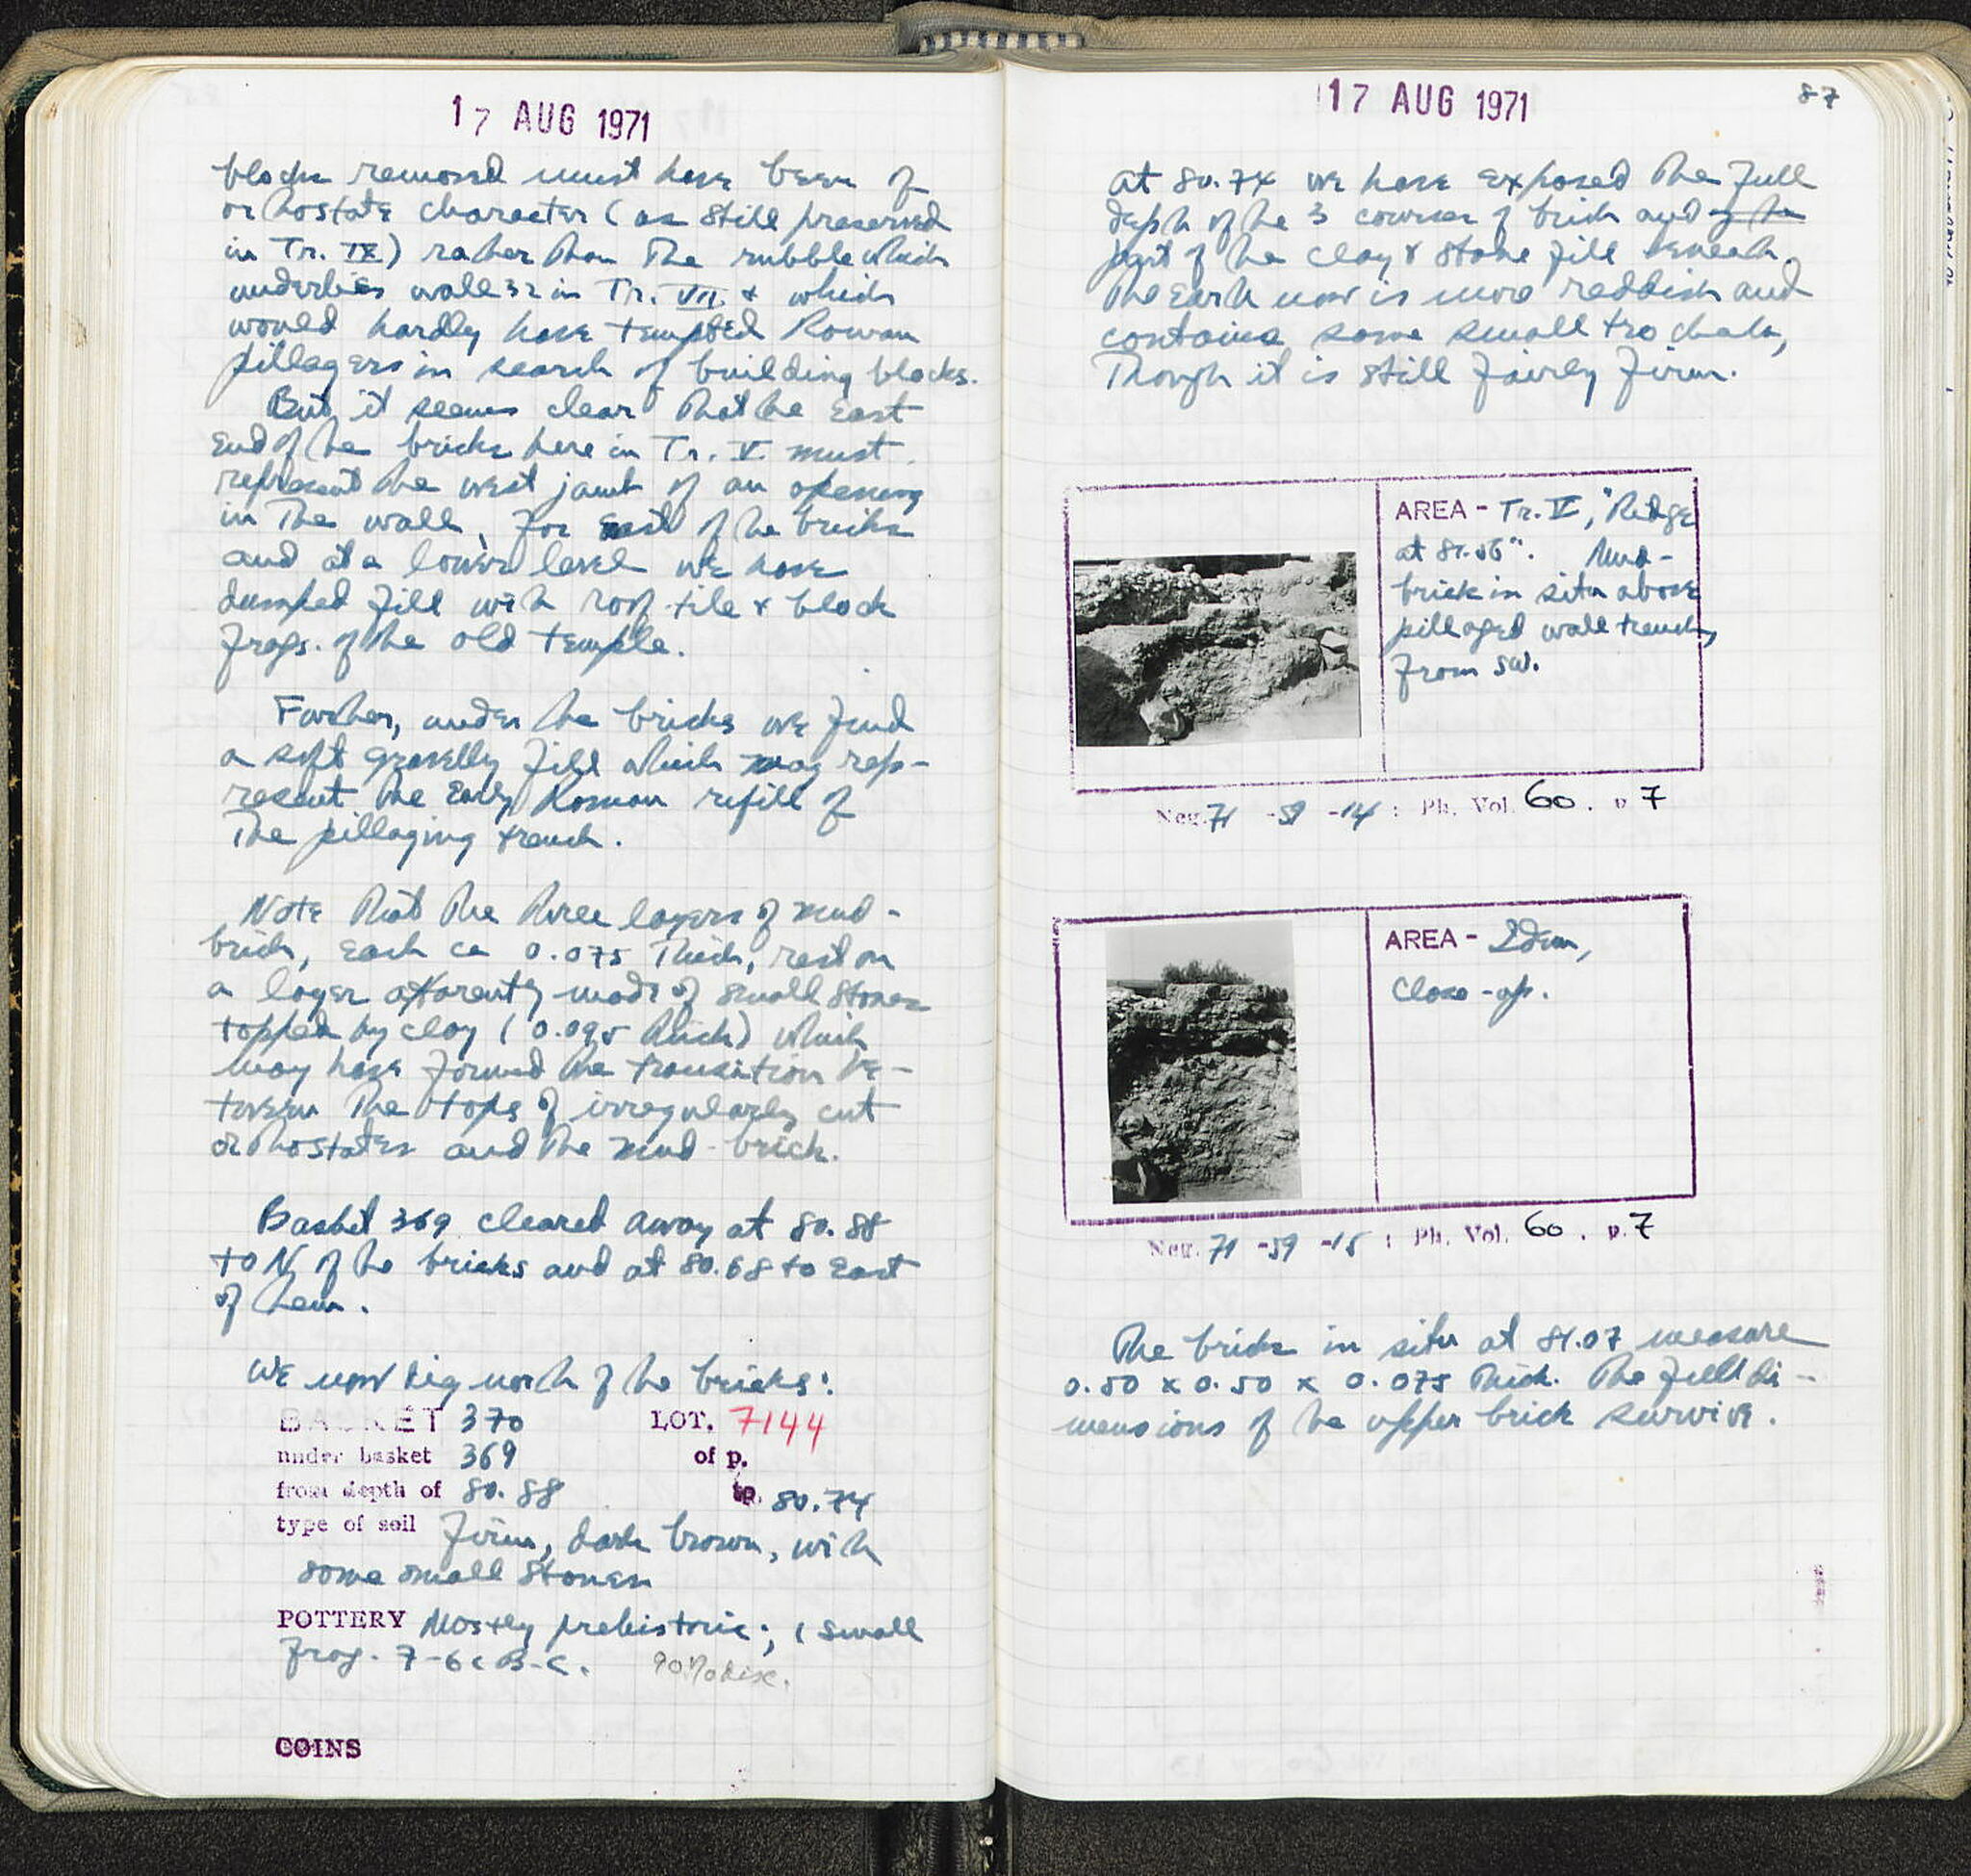 17 AUG 1971
blocks removed must have been of
orthostate character (as still preserved
in Tr. IX) rather than the rubble which
underlies wall 32 in Tr. VII & which
would hardly have tempted Roman
pillagers in search of building blocks.
But it seems clear that the East
End of the bricks here in Tr. V must
represent the west jamb of an opening
in the wall, for East of the bricks
and at a lower level we have
dumped fill with roof-tile & block
frags. of the old temple.
Further, under the bricks we find
a soft gravelly fill which may rep-
resent the Early Roman refill of
the pillaging trench.
Note that the three layers of mud-
brick, each ca 0.075 thick, rest on
a layer apparently made of small stones
topped by clay (0.095 thick) which
may have formed the transition be-
tween the tops of irregularly cut
orthostates and the mud-brick.
Basket 369 cleared away at 80.88
to N of the bricks and at 80.68 to East
of them.
We now dig north of the bricks:
BASKET 370 LOT. 7144
under basket 369 of p.
from depth of 80.88 to 80.74
type of soil Firm, dark brown, with
some small stones
POTTERY Mostly prehistoric; 1 small
frag. 7-6c B.C. 90% disc.
COINS
17 AUG 1971
87
at 80.74 we have exposed the full
depth of the 3 courses of brick and of the
part of the clay & stone fill beneath.
The Earth now is more reddish and
contains some small trochals,
Though it is still fairly firm.
AREA - Tr. V, "Ridge
at 81.06". Mud-
brick in situ above
pillaged wall trench,
from SW.
Neg. 71 -59 -14 : Ph. Vol. 60. p 7
AREA - Idem,
Close-up.
Neg. 71 -59 -15 : Ph. Vol. 60. p. 7
The bricks in situ at 81.07 measure
0.50 x 0.50 x 0.075 thick. The full di-
mensions of the upper brick survive.